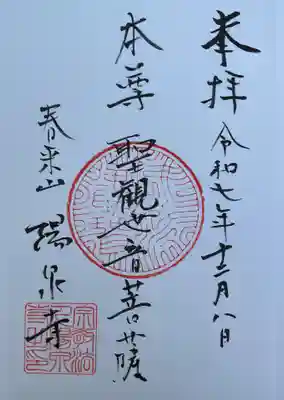 奉拝
令和七年十二月八日
本尊 聖観世音菩薩
春来山 陽泉寺